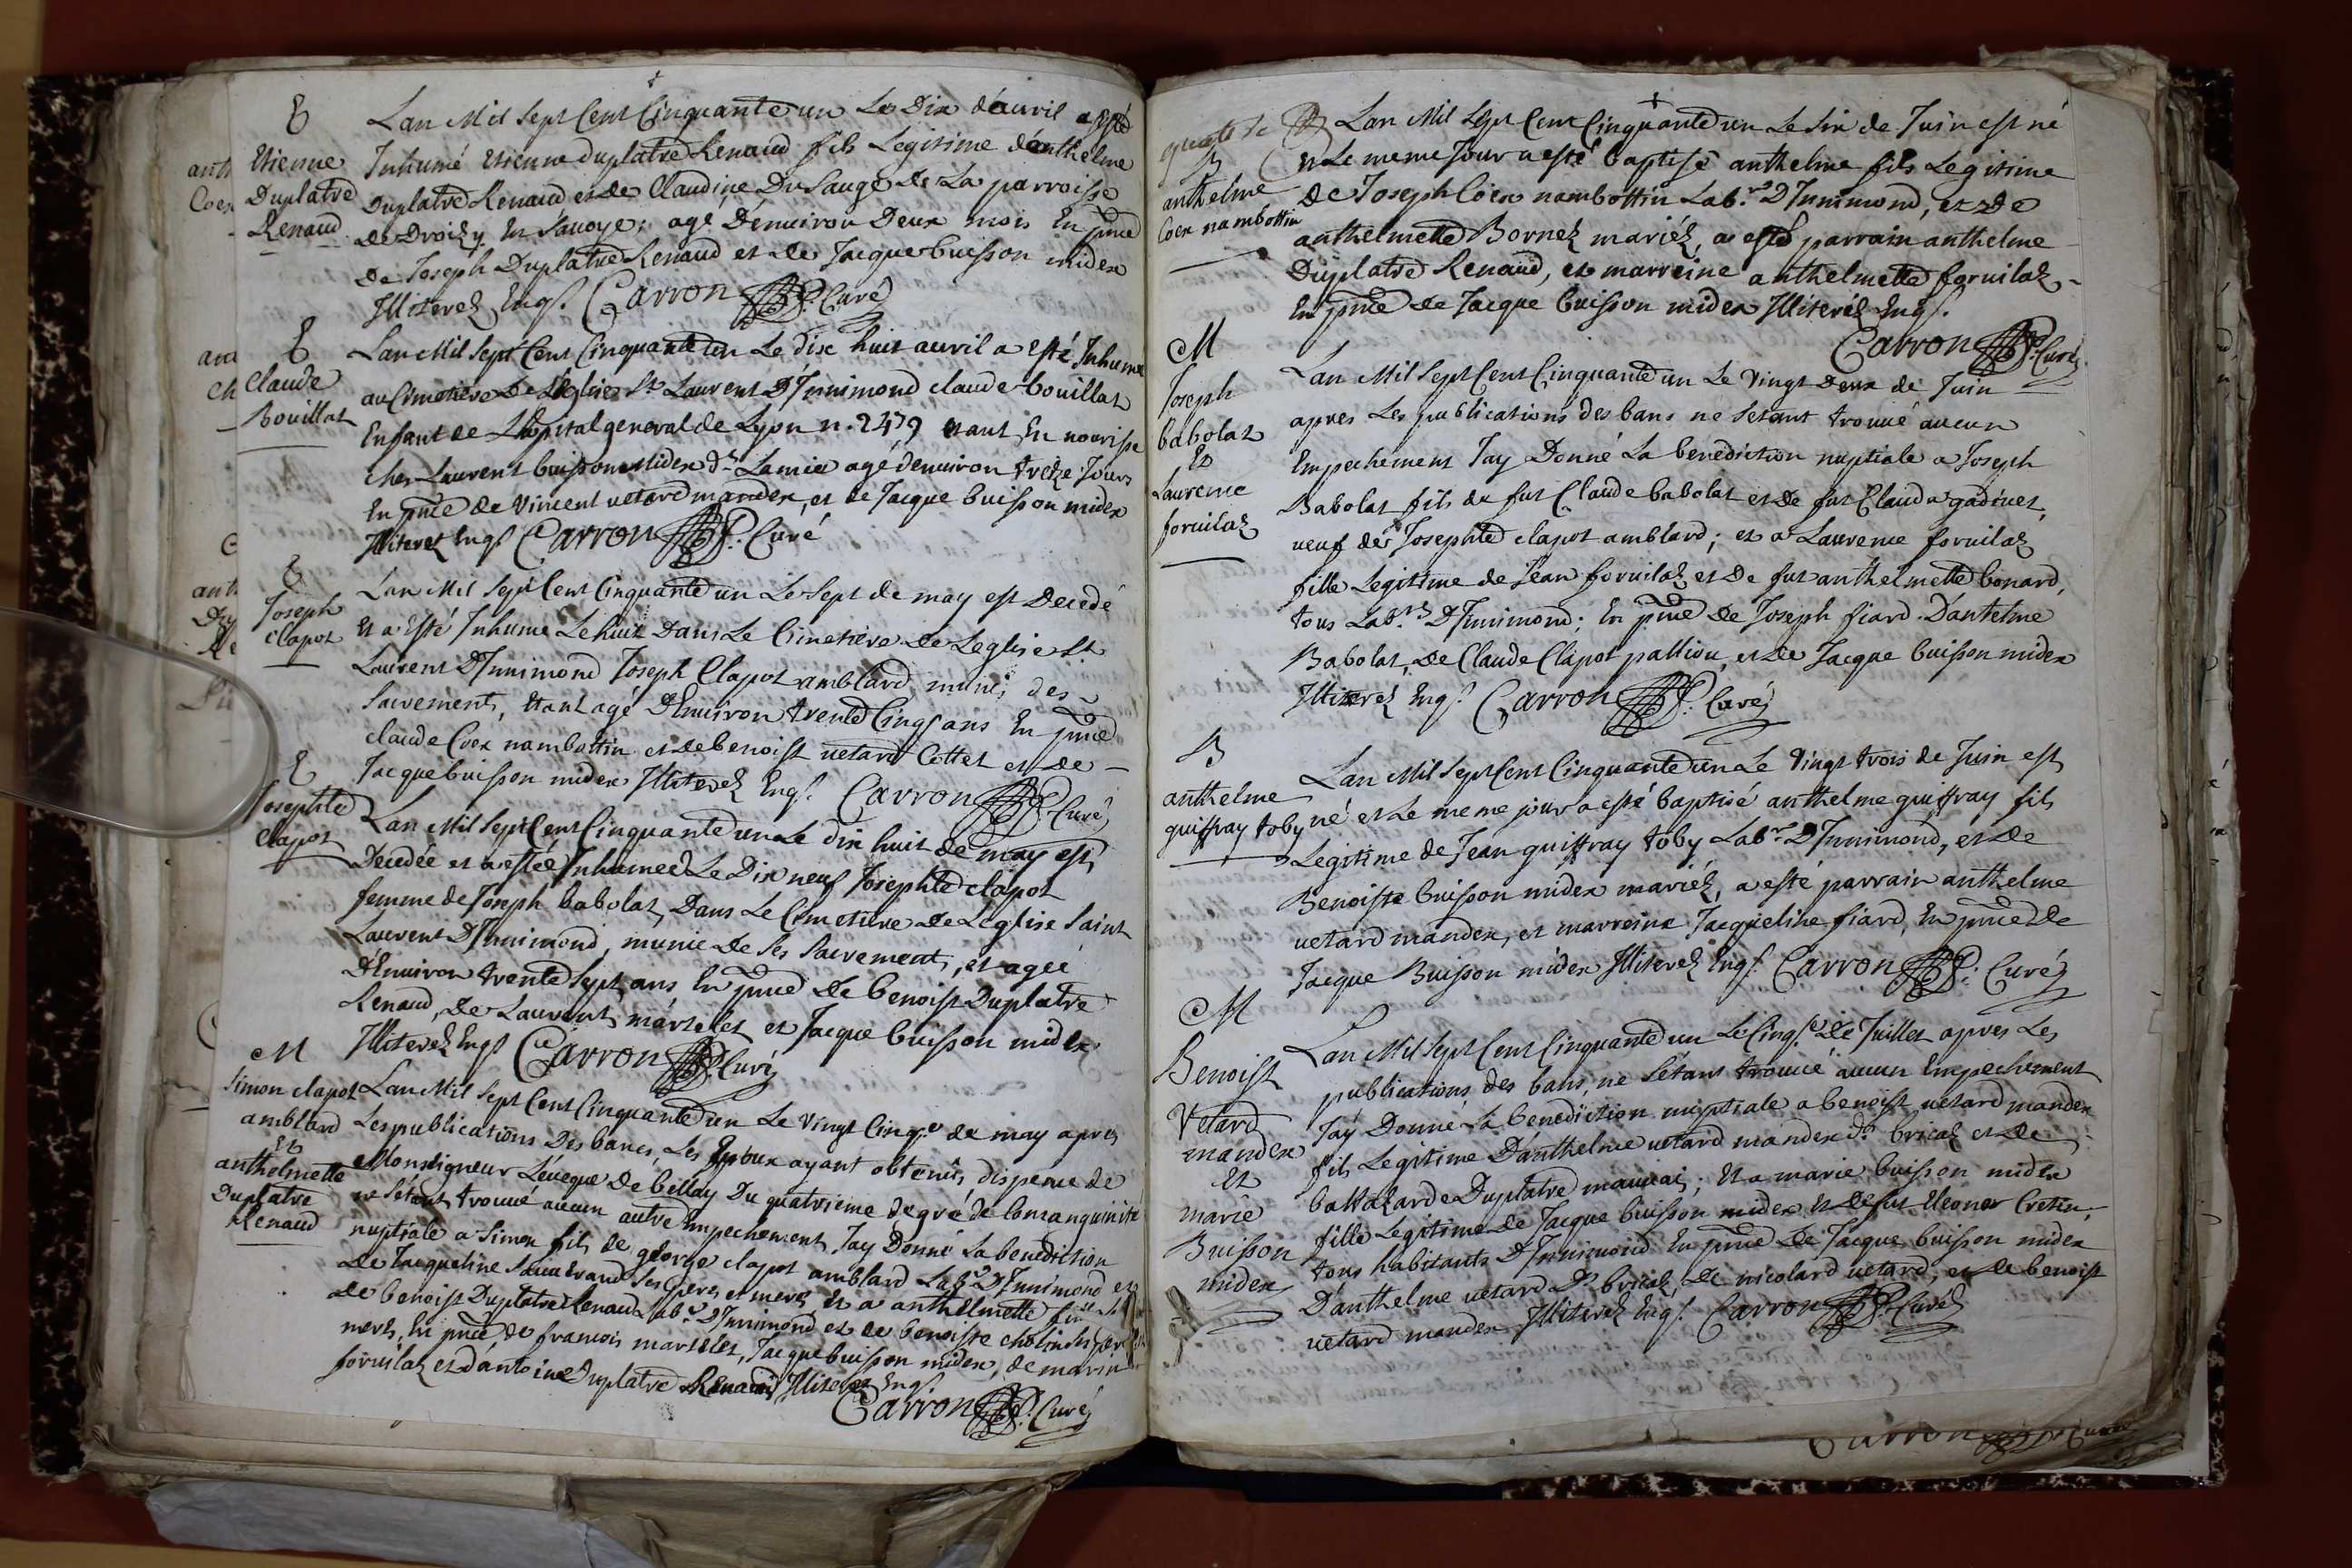 E
Etienne
Duplatre
Renaud
Lan Mil Sept Cent Cinquante un Le Dix d'auril a esté
Inhumé Etienne Duplatre Renaud fils Legitime d'anthelme
Duplatre Renaud et de Claudine Du Sauge de La parroisse
de Droizy En Sauoye; agé D'enuiron Deux mois En pnce
De Joseph Duplatre Renaud et de Jacque buisson midex
Illiterez Enqs. Carron Curé
E
Claude
Bouillat
Lan Mil Sept Cent Cinquante un Le dix huit auril a esté Inhumé
au Cimetiere de L'eglise St Laurent D'Innimond claude bouillat
Enfant de L'hopital general de Lyon n. 2479 etant En nourisse
chez Laurent buisson midex dt Lamie agé denuiron treize Jours
En pnce de Vincent uetard mandex, et de Jacque buisson midex
Illiterez Enqs Carron Curé
E
Joseph
Clapot
Lan Mil Sept Cent Cinquante un Le Sept de may est Decedé
Et a Esté Inhumé Le huit Dans Le Cimetiere de Leglise St
Laurent D'Innimond Joseph Clapot amblard muni des
Sacrements, Etant agé D'Enuiron trente Cinq ans En pnce
claude Coex nambottin et de benoist uetard Cottet et de
Jacque buisson midex Illiterez Enqs. Carron Curé
E
Josephte
Clapot
Lan Mil Sept Cent Cinquante un Le dix huit de may est
Decedée et a estée Inhumée Le Dix neuf Josephte clapot
femme de Joseph babolat, Dans Le Cimetiere de Leglise Saint
Laurent D'Innimond, munie de Ses Sacrements, et agée
D'Enuiron trente Sept ans En pnce de benoist Duplatre
Renaud, de Laurent martelet et Jacque buisson midex
Illiterez Enqs Carron Curé
M
Simon clapot
amblard
Et
anthelmette
Duplatre
Renaud
Lan Mil Sept Cent Cinquante un Le Vingt Cinqe de may apres
Les publications Des bancs, Les Epoux ayant obtenus dispence de
Monseigneur L'eueque De bellay Du quatrieme degré de Consanguinité
ne S'etant trouué aucun autre Empechement Jay Donné La benediction
nuptiale a Simon fils de george clapot amblard Labr D'Innimond et
de Jacqueline Sauuerand Ses peres et meres Et a anthelmette fille
de benoist Duplatre Renaud Labr D'Innimond et de benoiste cholin Ses pere
meres, En pnce de francois martelet, Jacque buisson midex, de marin
foruilaz et d'antoine Duplatre Renaud Illiterez Enqs.
Carron Curé
B
anthelme
Coex nambottin
Lan Mil Sept Cent Cinquante un Le Six de Juin est né
et Le meme Jour a esté baptisé anthelme fils Legitime
de Joseph Coex nambottin Labr D'Innimond, et de
anthelmette Bornez mariéz, a esté parrain anthelme
Duplatre Renaud, et marreine anthelmette foruilaz
En pnce de Jacque buisson midex Illiteréz Enqs.
Carron Curé
M
Joseph
babolat
Et
Laurence
foruilaz
Lan Mil Sept Cent Cinquante un Le Vingt Deux de Juin
apres Les publications des bans ne Setant trouué aucun
Empechement Jay Donné La benediction nuptiale a Joseph
Babolat fils de fut Claude babolat et de fut Clauda gadinet,
ueuf de Josephte clapot amblard; et a Laurence foruilaz
fille Legitime de Jean foruilaz et De fut anthelmette bonard,
tous Labrs D'Innimond; En pnce De Joseph fiard D'antelme
Babolat, de Claude Clapot pattiou, et de Jacque buisson midex
Illiterez Enqs. Carron Curé
B
anthelme
guiffray toby
Lan Mil Sept Cent Cinquante un Le Vingt trois de Juin est
né et Le meme jour a esté baptisé anthelme guiffray fils
Legitime de Jean guiffray toby Labr D'Innimond, et de
Benoiste buisson midex mariéz, a esté parrain anthelme
uetard mandex, et marreine Jacqueline fiard, En pnce de
Jacque Buisson midex Illiterez Enqs. Carron Curé
M
Benoist
Vetard
mandex
Et
marie
Buisson
midex
Lan Mil Sept Cent Cinquante un Le Cinqe de Juillet apres Les
publications des bans, ne S'etant trouué aucun Empechement
Jay Donné La benediction nuptiale a benoist uetard mandex
fils Legitime D'anthelme uetard mandex dt bricaz et de
baltazarde Duplatre mauuais; Et a marie buisson midex
fille Legitime de Jacque buisson midex et de fut Eleonor Cretin,
tous habitants D'Innimond En pnce De Jacque buisson midex
D'anthelme uetard Dt bricaz, De nicolard uetard, et de benoist
uetard mandex Illiterez Enqs. Carron Curé
Carron Curé